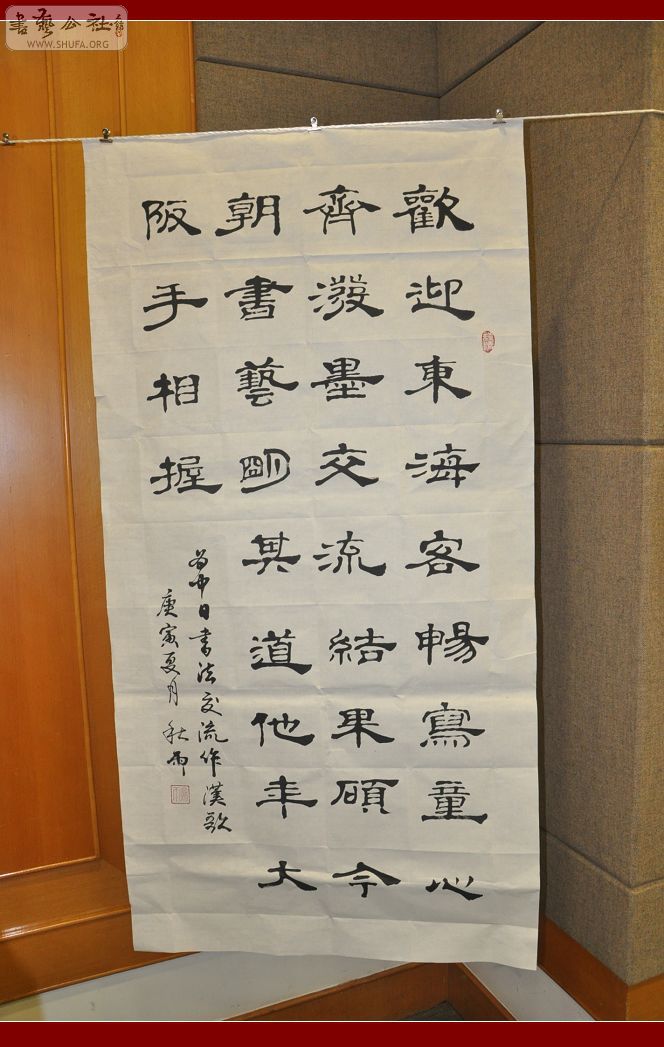 書藝公社
WWW.SHUFA.ORG
歡迎東海客暢寫童心
齊潑墨交流結果碩今
朝書藝明其道他年大
阪手相握
為中日書法交流作漢歌
庚寅夏月秋雨